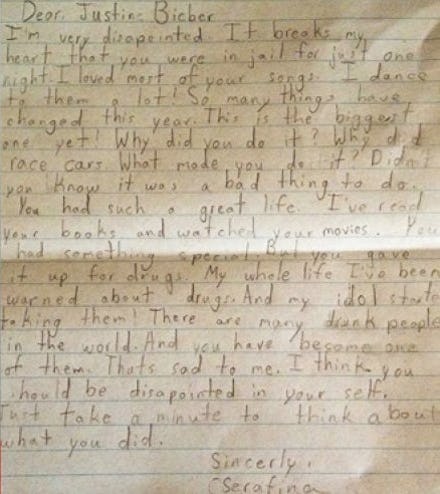 Dear. Justin Bieber
I'm very disapointed. It breaks my
heart that you were in jail for just one
night. I loved most of your songs. I dance
to them a lot! So many things have
changed this year. This is the biggest
one yet! Why did you do it? Why did
race cars What made you do it? Didn't
you know it was a bad thing to do.
You had such a great life. I've read
your books and watched your movies. You
had something special. But you gave
it up for drugs. My whole life I've been
warned about drugs. And my idol starte
taking them! There are many drunk people
in the world. And you have become one
of them. Thats sad to me. I think you
should be disapointed in your self.
Just take a minute to think about
what you did.
Sincerly,
Serafina